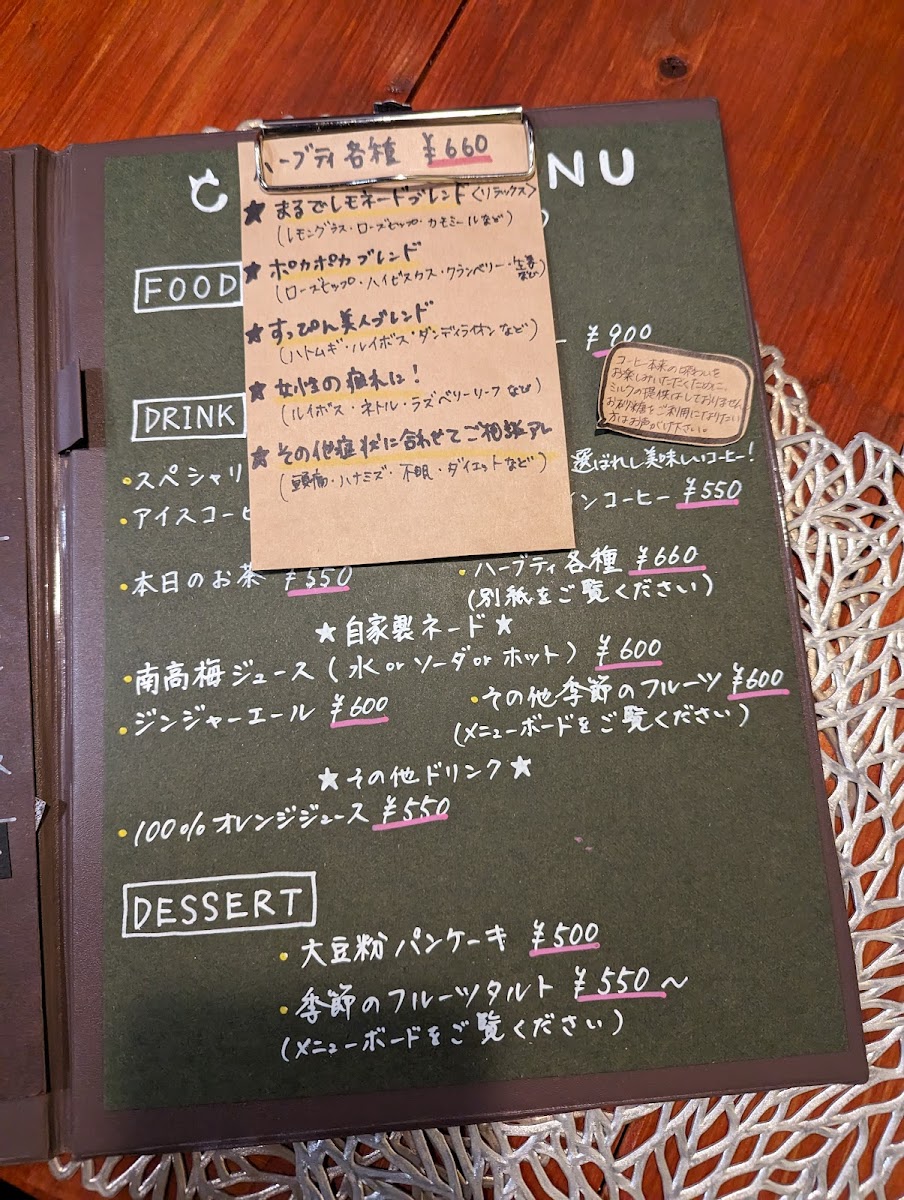 ハーブティ各種 ¥660
★まるでレモネードブレンド〈リラックス〉
(レモングラス・ローズヒップ・カモミールなど)
★ポカポカブレンド
(ローズヒップ・ハイビスカス・クランベリー・生姜など)
★すっぴん美人ブレンド
(ハトムギ・ルイボス・ダンディライオンなど)
★女性の疲れに!
(ルイボス・ネトル・ラズベリーリーフなど)
★その他症状に合わせてご相談アレ
(頭痛・ハナミズ・不眠・ダイエットなど)
C NU
FOOD
ー ¥900
コーヒー本来の味わいを
お楽しみいただくために、
ミルクの提供はしておりません
お砂糖をご利用になりたい
方はお声がけ下さい。
DRINK
・スペシャリ 選ばれし美味しいコーヒー!
・アイスコーヒ インコーヒー ¥550
・本日のお茶 ¥550
・ハーブティ各種 ¥660
(別紙をご覧ください)
★自家製ネード★
・南高梅ジュース(水orソーダorホット) ¥600
・ジンジャーエール ¥600
・その他季節のフルーツ ¥600
(メニューボードをご覧ください)
★その他ドリンク★
・100%オレンジジュース ¥550
DESSERT
・大豆粉パンケーキ ¥500
・季節のフルーツタルト ¥550〜
(メニューボードをご覧ください)